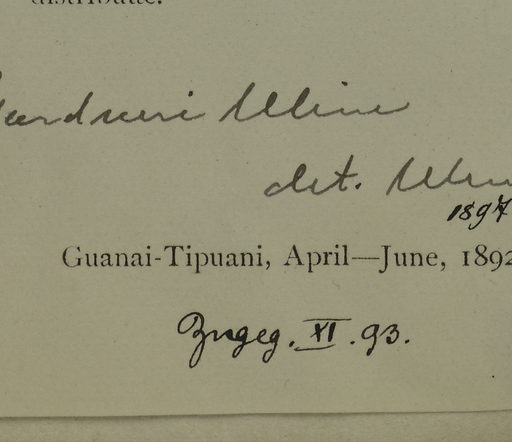 distribute.
Gardneri Uline
det. Uline
1897
Guanai-Tipuani, April—June, 1892
Zugeg. XI. 93.